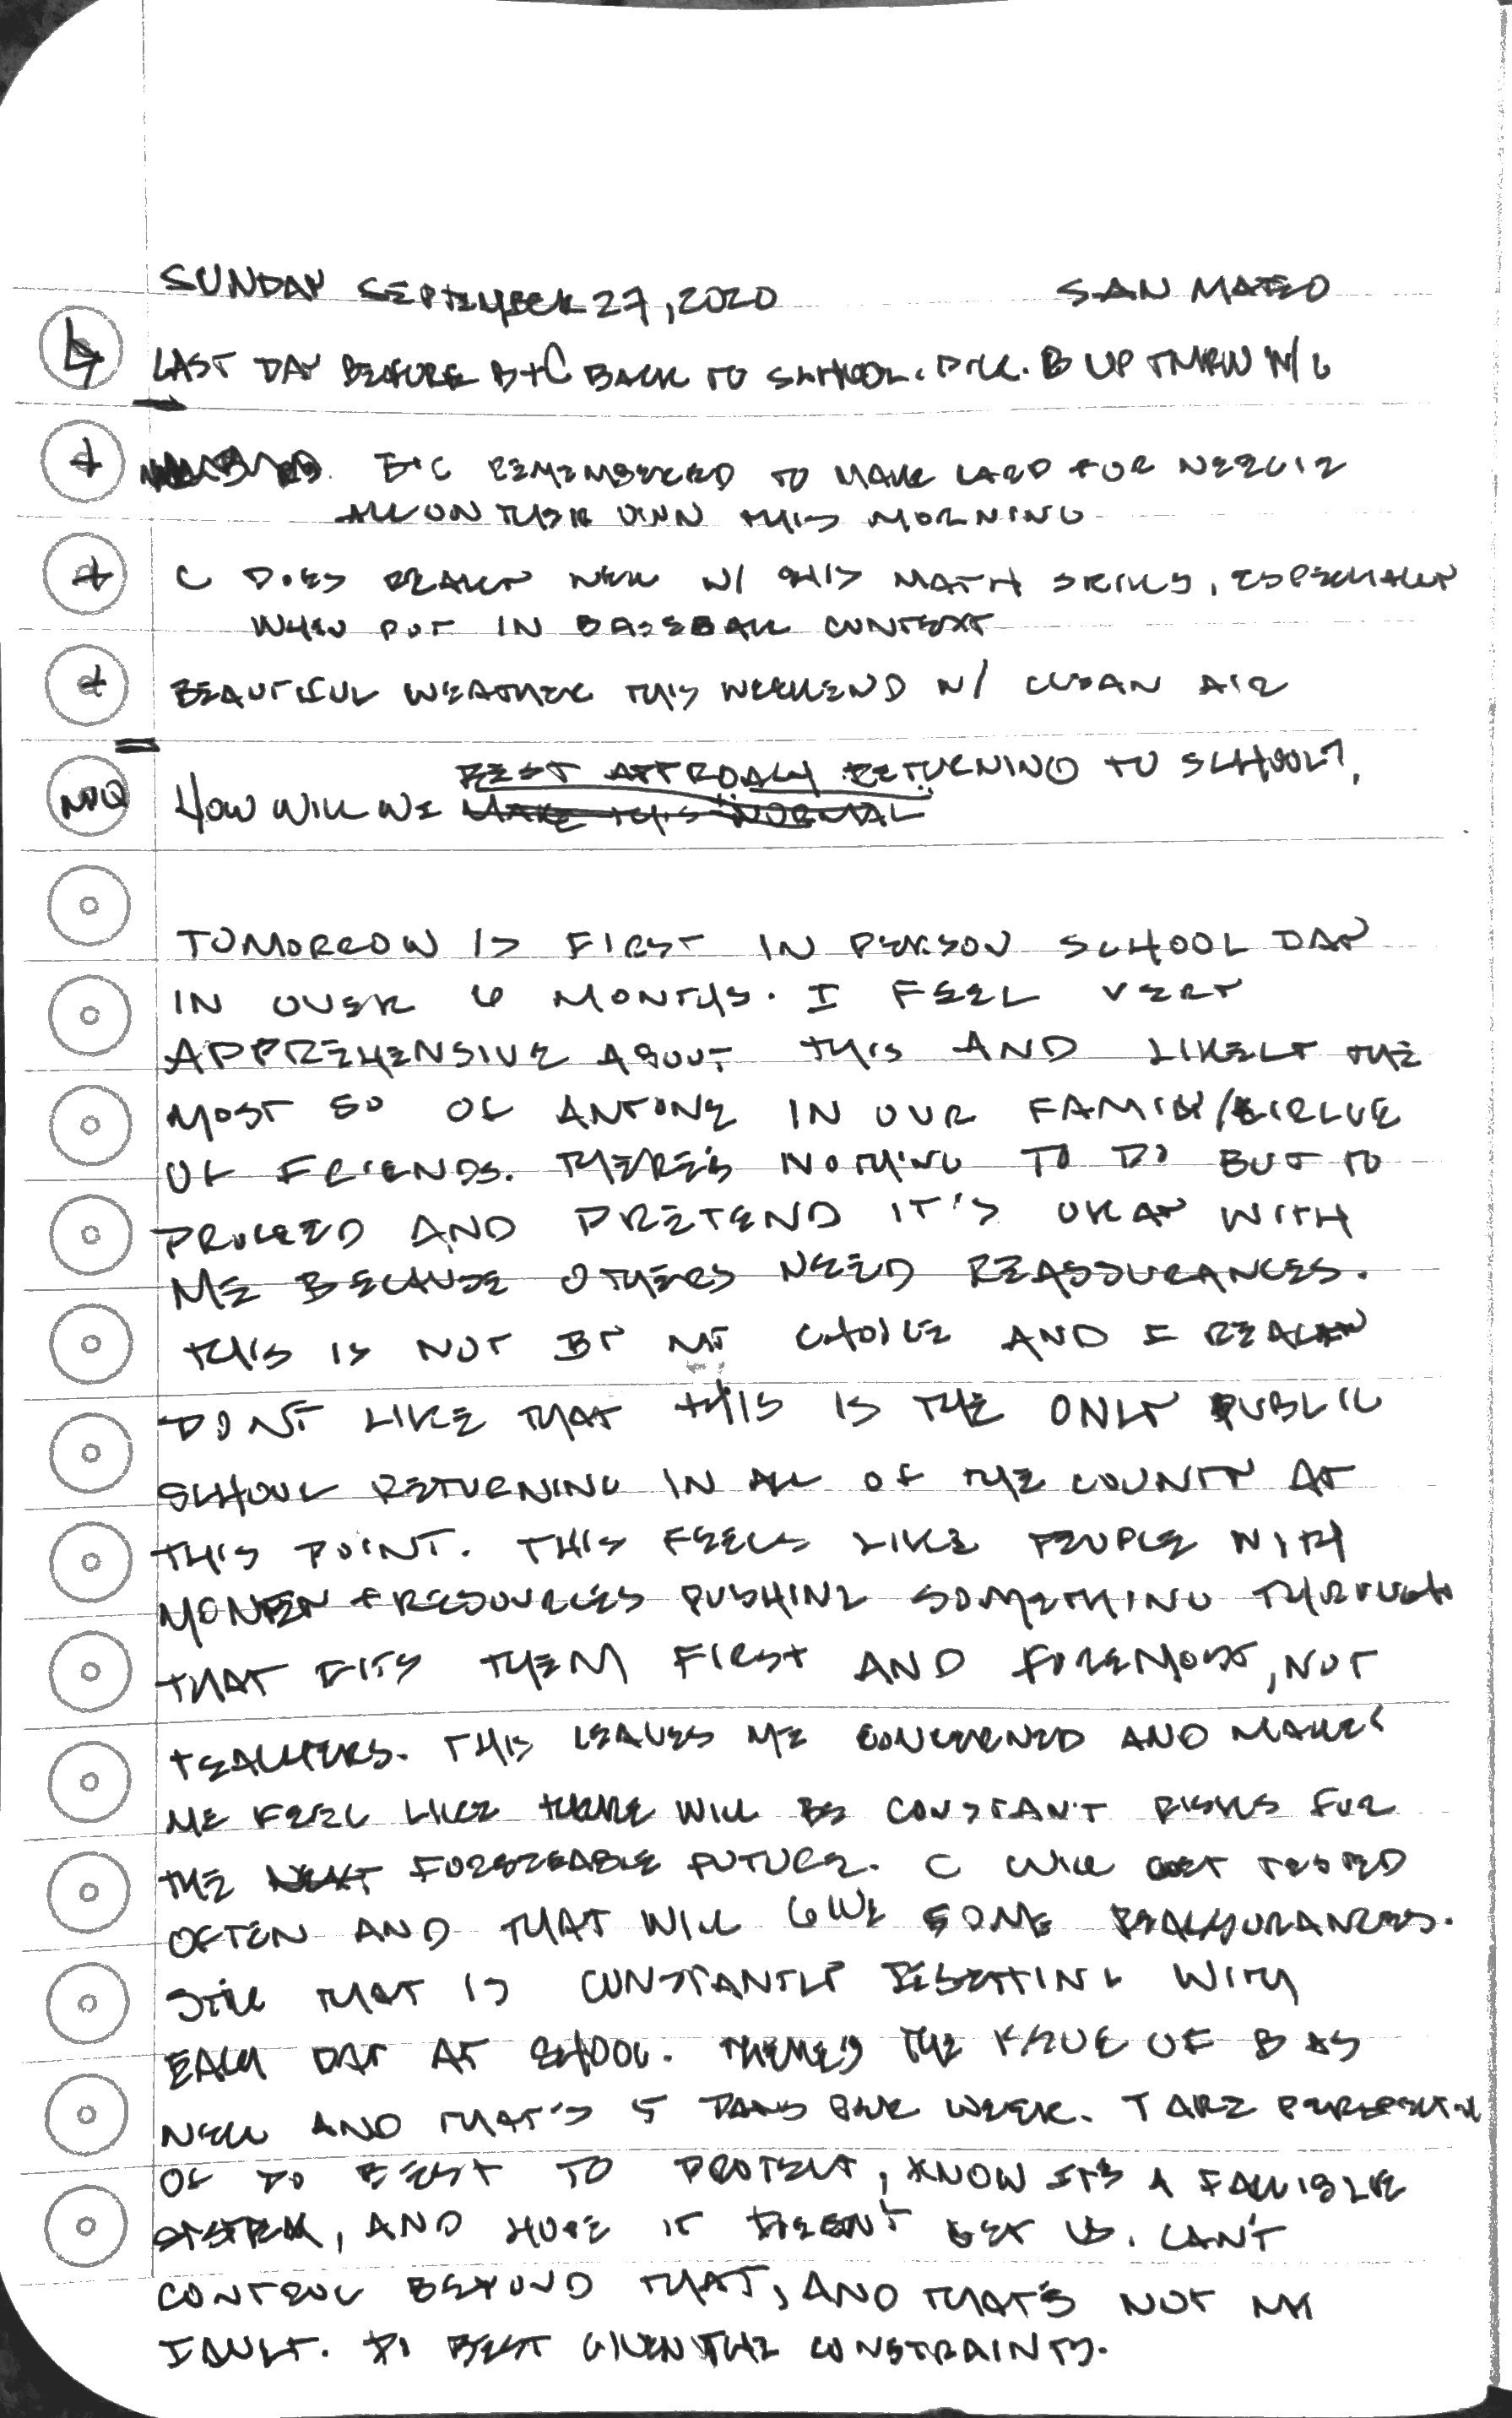 SUNDAY SEPTEMBER 27, 2020 SAN MATEO
L LAST DAY BEFORE B+C BACK TO SCHOOL. PICK B UP TMRW W/ C
+ B+C REMEMBERED TO MAKE CARD FOR
ALL ON THEIR OWN THIS MORNING
+ C DOES REALLY WELL W/ HIS MATH SKILLS, ESPECIALLY
WHEN PUT IN BASEBALL CONTEXT
+ BEAUTIFUL WEATHER THIS WEEKEND W/ CLEAN AIR
BEST APPROACH RETURNING TO SCHOOL?
MDQ HOW WILL WE MAKE THIS "NORMAL"
TOMORROW IS FIRST IN PERSON SCHOOL DAY
IN OVER 6 MONTHS. I FEEL VERY
APPREHENSIVE ABOUT THIS AND LIKELY THE
MOST SO OF ANYONE IN OUR FAMILY/CIRCLE
OF FRIENDS. THERE'S NOTHING TO DO BUT TO
PROCEED AND PRETEND IT'S OKAY WITH
ME BECAUSE OTHERS NEED REASSURANCES.
THIS IS NOT BY MY CHOICE AND I REALLY
DONT LIKE THAT THIS IS THE ONLY PUBLIC
SCHOOL RETURNING IN ALL OF THE COUNTY AT
THIS POINT. THIS FEELS LIKE PEOPLE WITH
MONEY + RESOURCES PUSHING SOMETHING THROUGH
THAT FITS THEM FIRST AND FOREMOST, NOT
TEACHERS. THIS LEAVES ME CONCERNED AND MAKES
ME FEEL LIKE THERE WILL BE CONSTANT RISKS FOR
THE NEXT FORESEEABLE FUTURE. C WILL GET TESTED
OFTEN AND THAT WILL GIVE SOME REASSURANCES.
STILL THAT IS CONSTANTLY RESETTING WITH
EACH DAY AT SCHOOL. THERE'S THE ISSUE OF B AS
WELL AND THAT'S 5 DAYS PER WEEK. TAKE PERSPECTIVE
OF DO BEST TO PROTECT, KNOW IT'S A FALLIBLE
SYSTEM, AND HOPE IT DOESN'T GET US. CAN'T
CONTROL BEYOND THAT, AND THAT'S NOT MY
FAULT. DO BEST GIVEN THE CONSTRAINTS.